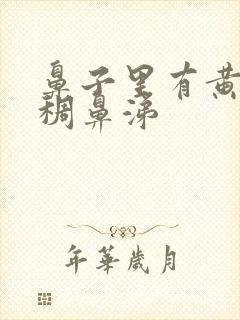 鼻子里有黄
稠鼻涕
年华岁月